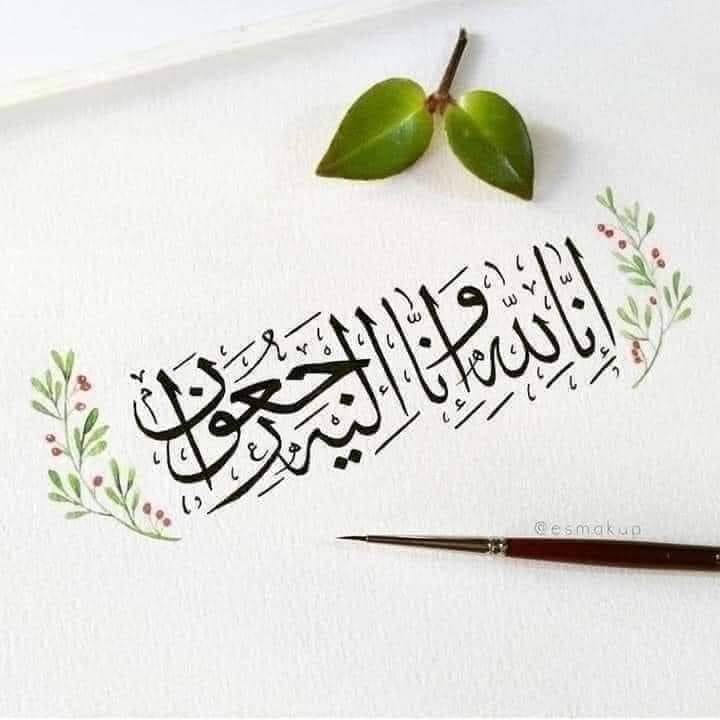 إِنَّا لِلَّهِ وَإِنَّا إِلَيْهِ رَاجِعُونَ
@esmakup